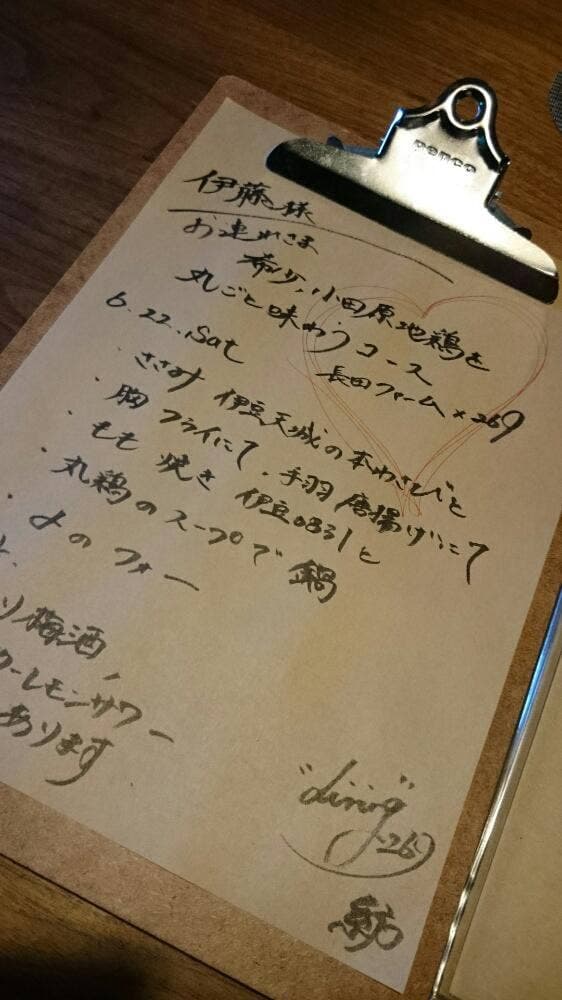 penco
伊藤様
お連れさま
希少、小田原地鶏を
丸ごと味わうコース
長田ファーム×269
6.22.Sat
・ささみ 伊豆天城の本わさびと
・胸 フライにて、手羽 唐揚げにて
・もも 焼き 伊豆0831と
・丸鶏のスープで鍋
・〆のフォー
り梅酒、
ワーレモンサワー
あります
"dining"
269